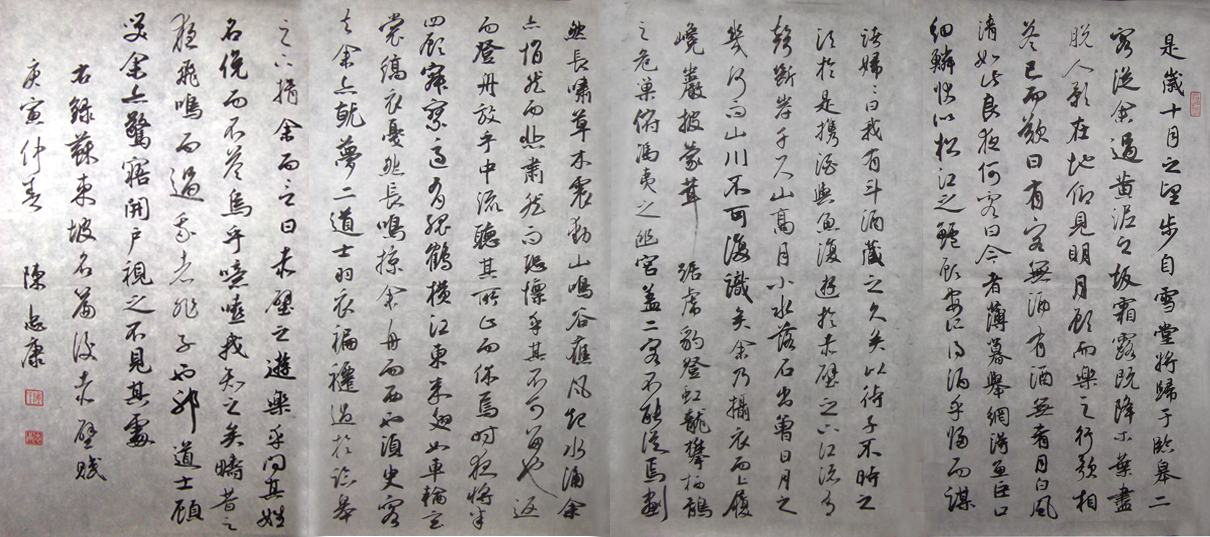 是歲十月之望步自雪堂將歸于臨皋二
客從余過黃泥之坂霜露既降木葉盡
脫人影在地仰見明月顧而樂之行歌相
答已而歎曰有客無酒有酒無肴月白風
清如此良夜何客曰今者薄暮舉網得魚巨口
細鱗狀似松江之鱸顧安所得酒乎歸而謀
諸婦〻曰我有斗酒藏之久矣以待子不時之
須於是攜酒與魚復遊於赤壁之下江流有
聲斷岸千尺山高月小水落石出曾日月之
幾何而山川不可復識矣余乃攝衣而上履
巉巖披蒙茸踞虎豹登虬龍攀栖鶻
之危巢俯馮夷之幽宮蓋二客不能從焉劃
然長嘯草木震動山鳴谷應風起水涌余
亦悄然而悲肅然而恐懍乎其不可留也返
而登舟放乎中流聽其所止而休焉時夜將半
四顧寂寥適有孤鶴橫江東來翅如車輪玄
裳縞衣戛然長鳴掠余舟而西也須臾客
去余亦就夢二道士羽衣褊褼過於臨皋
之下揖余而言曰赤壁之遊樂乎問其姓
名俛而不答烏乎噫嘻我知之矣疇昔之
夜飛鳴而過我者非子也邪道士顧
笑余亦驚寤開戶視之不見其處
右錄蘇東坡名篇後赤壁賦
庚寅仲春 陳志康